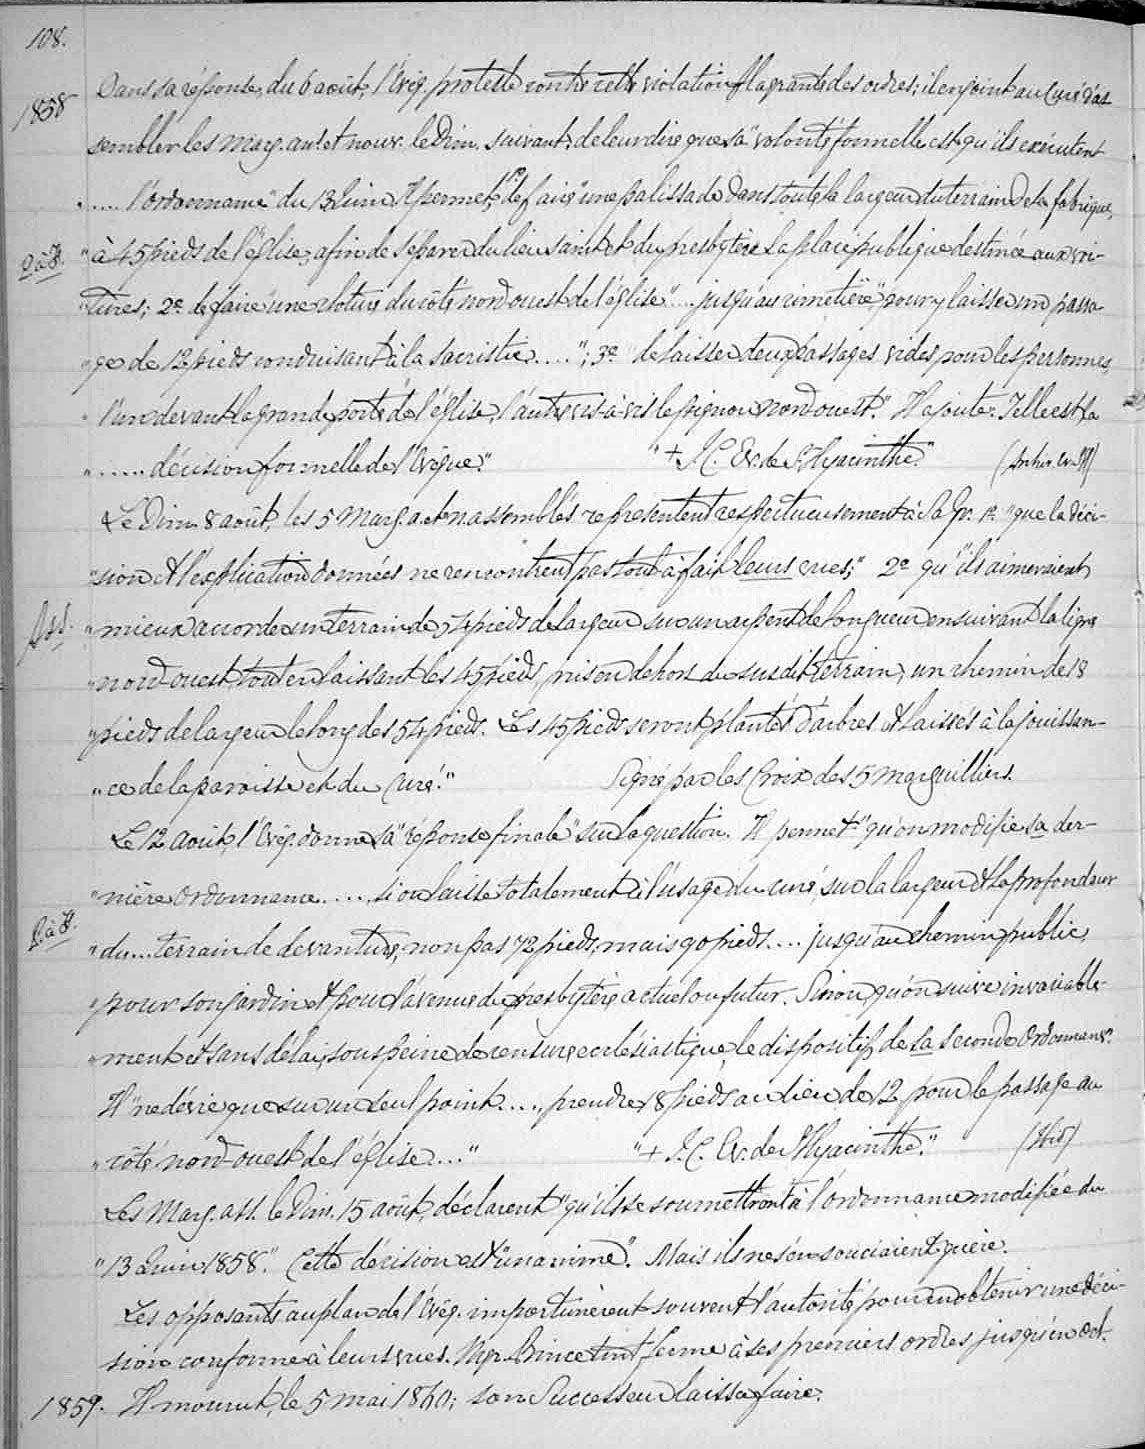 108.
Dans sa réponse, du 6 août, l'Évêq. proteste contre cette violation flagrante des ordres; il enjoint au Curé d'as
1858
sembler les Marg. anc. et nouv. le Dim. suivant; de leur dire que sa "volonté formelle est qu'ils exécutent
"..... l'ordonnance" du 13 Juin. Il permet, 1º "de faire "une palissade dans toute la largeur du terrain de la fabrique,
P. à J.
"à 45 pieds de l'église, afin de séparer du lieu saint et du presbytère la place publique destinée aux voi-
"tures; 2º de faire "une cloture du côté nord ouest de l'église".... jusqu'au cimetière, pour y laisser un passa
"ge de 12 pieds conduisant à la sacristie....."; 3º "de laisser deux passages vides pour les personnes,
"l'un devant la grande porte de l'église, l'autre vis-à-vis le pignon nord ouest." Il ajoute: Telle est la
"...... décision formelle de l'Évêque."
"+ J. C. Ev. de St Hyacinthe."
(Archiv. Ev. St H)
Le Dim. 8 août, les 5 Marg. a. et n. assemblés "représentent respectueusement à Sa Gr. 1º "que la déci-
"sion et l'explication données ne rencontrent pas tout à fait leurs vues;" 2º qu'"ils aimeraient
Ass.
"mieux accorder un terrain de 54 pieds de largeur sur un arpent de longueur en suivant la ligne
"nord-ouest, tout en laissant les 45 pieds, pris en dehors du susdit terrain, un chemin de 18
"pieds de largeur le long des 54 pieds. Les 45 pieds seront plantés d'arbres et laissés à la jouissan-
"ce de la paroisse et du Curé."
Signé par les Croix des 5 marguilliers.
Le 12 août, l'Évêq. donne sa "réponse finale" sur la question. Il permet "qu'on modifie sa der-
"nière Ordonnance....., si on laisse totalement à l'usage du curé, sur la largeur et la profondeur
P. à J.
"du... terrain de devanture, non pas 72 pieds, mais 90 pieds.... jusqu'au chemin public,
"pour son jardin et pour l'avenue du presbytère actuel ou futur. Sinon, qu'on suive invariable-
"ment et sans délai, sous peine de censure ecclésiastique, le dispositif de sa seconde Ordonnance.
Il "ne dévie que sur un seul point...., prendre 18 pieds au lieu de 12 pour le passage au
"côté nord-ouest de l'église...."
"+ J. C. Ev. de St Hyacinthe."
(Ibid)
Les Marg. ass. le Dim. 15 août, déclarent "qu'ils se soumettront à l'ordonnance modifiée du
"13 Juin 1858". Cette décision est "unanime". Mais ils ne s'en souciaient guère.
Les opposants au plan de l'Évêq. importunèrent souvent l'autorité pour en obtenir une déci-
sion conforme à leurs vues. Mgr. Prince tint ferme à ses premiers ordres jusqu'en oct.
1859. Il mourut, le 5 mai 1860; son Successeur laissa faire.